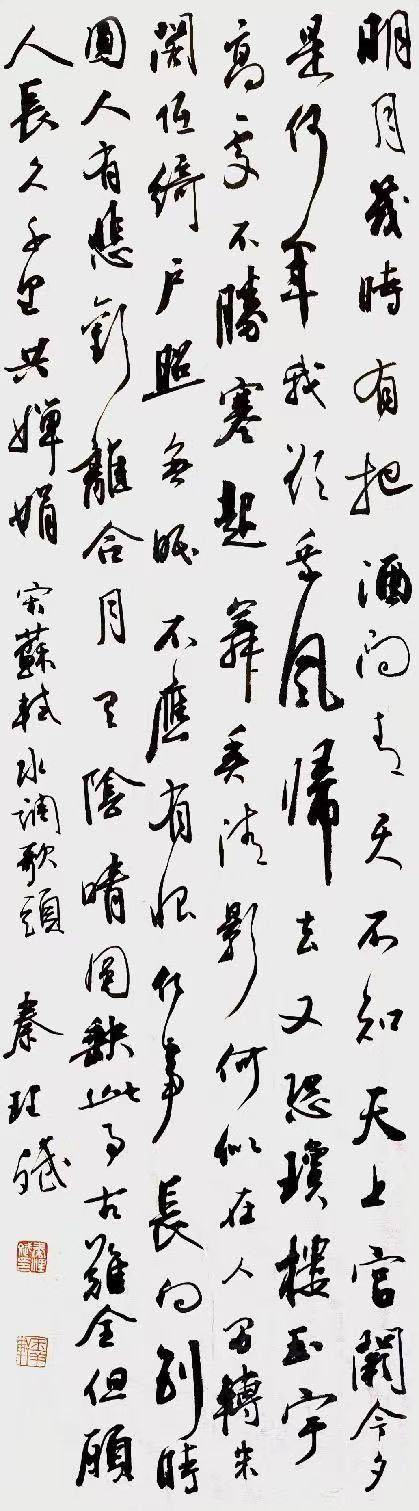 明月幾時有把酒問青天不知天上宫闕今夕
是何年我欲乘風歸去又恐瓊樓玉宇
高處不勝寒起舞弄清影何似在人間轉朱
閣低綺户照無眠不應有恨何事長向别時
圓人有悲歡離合月有陰晴圓缺此事古難全但願
人長久千里共嬋娟 宋蘇軾水調歌頭 秦